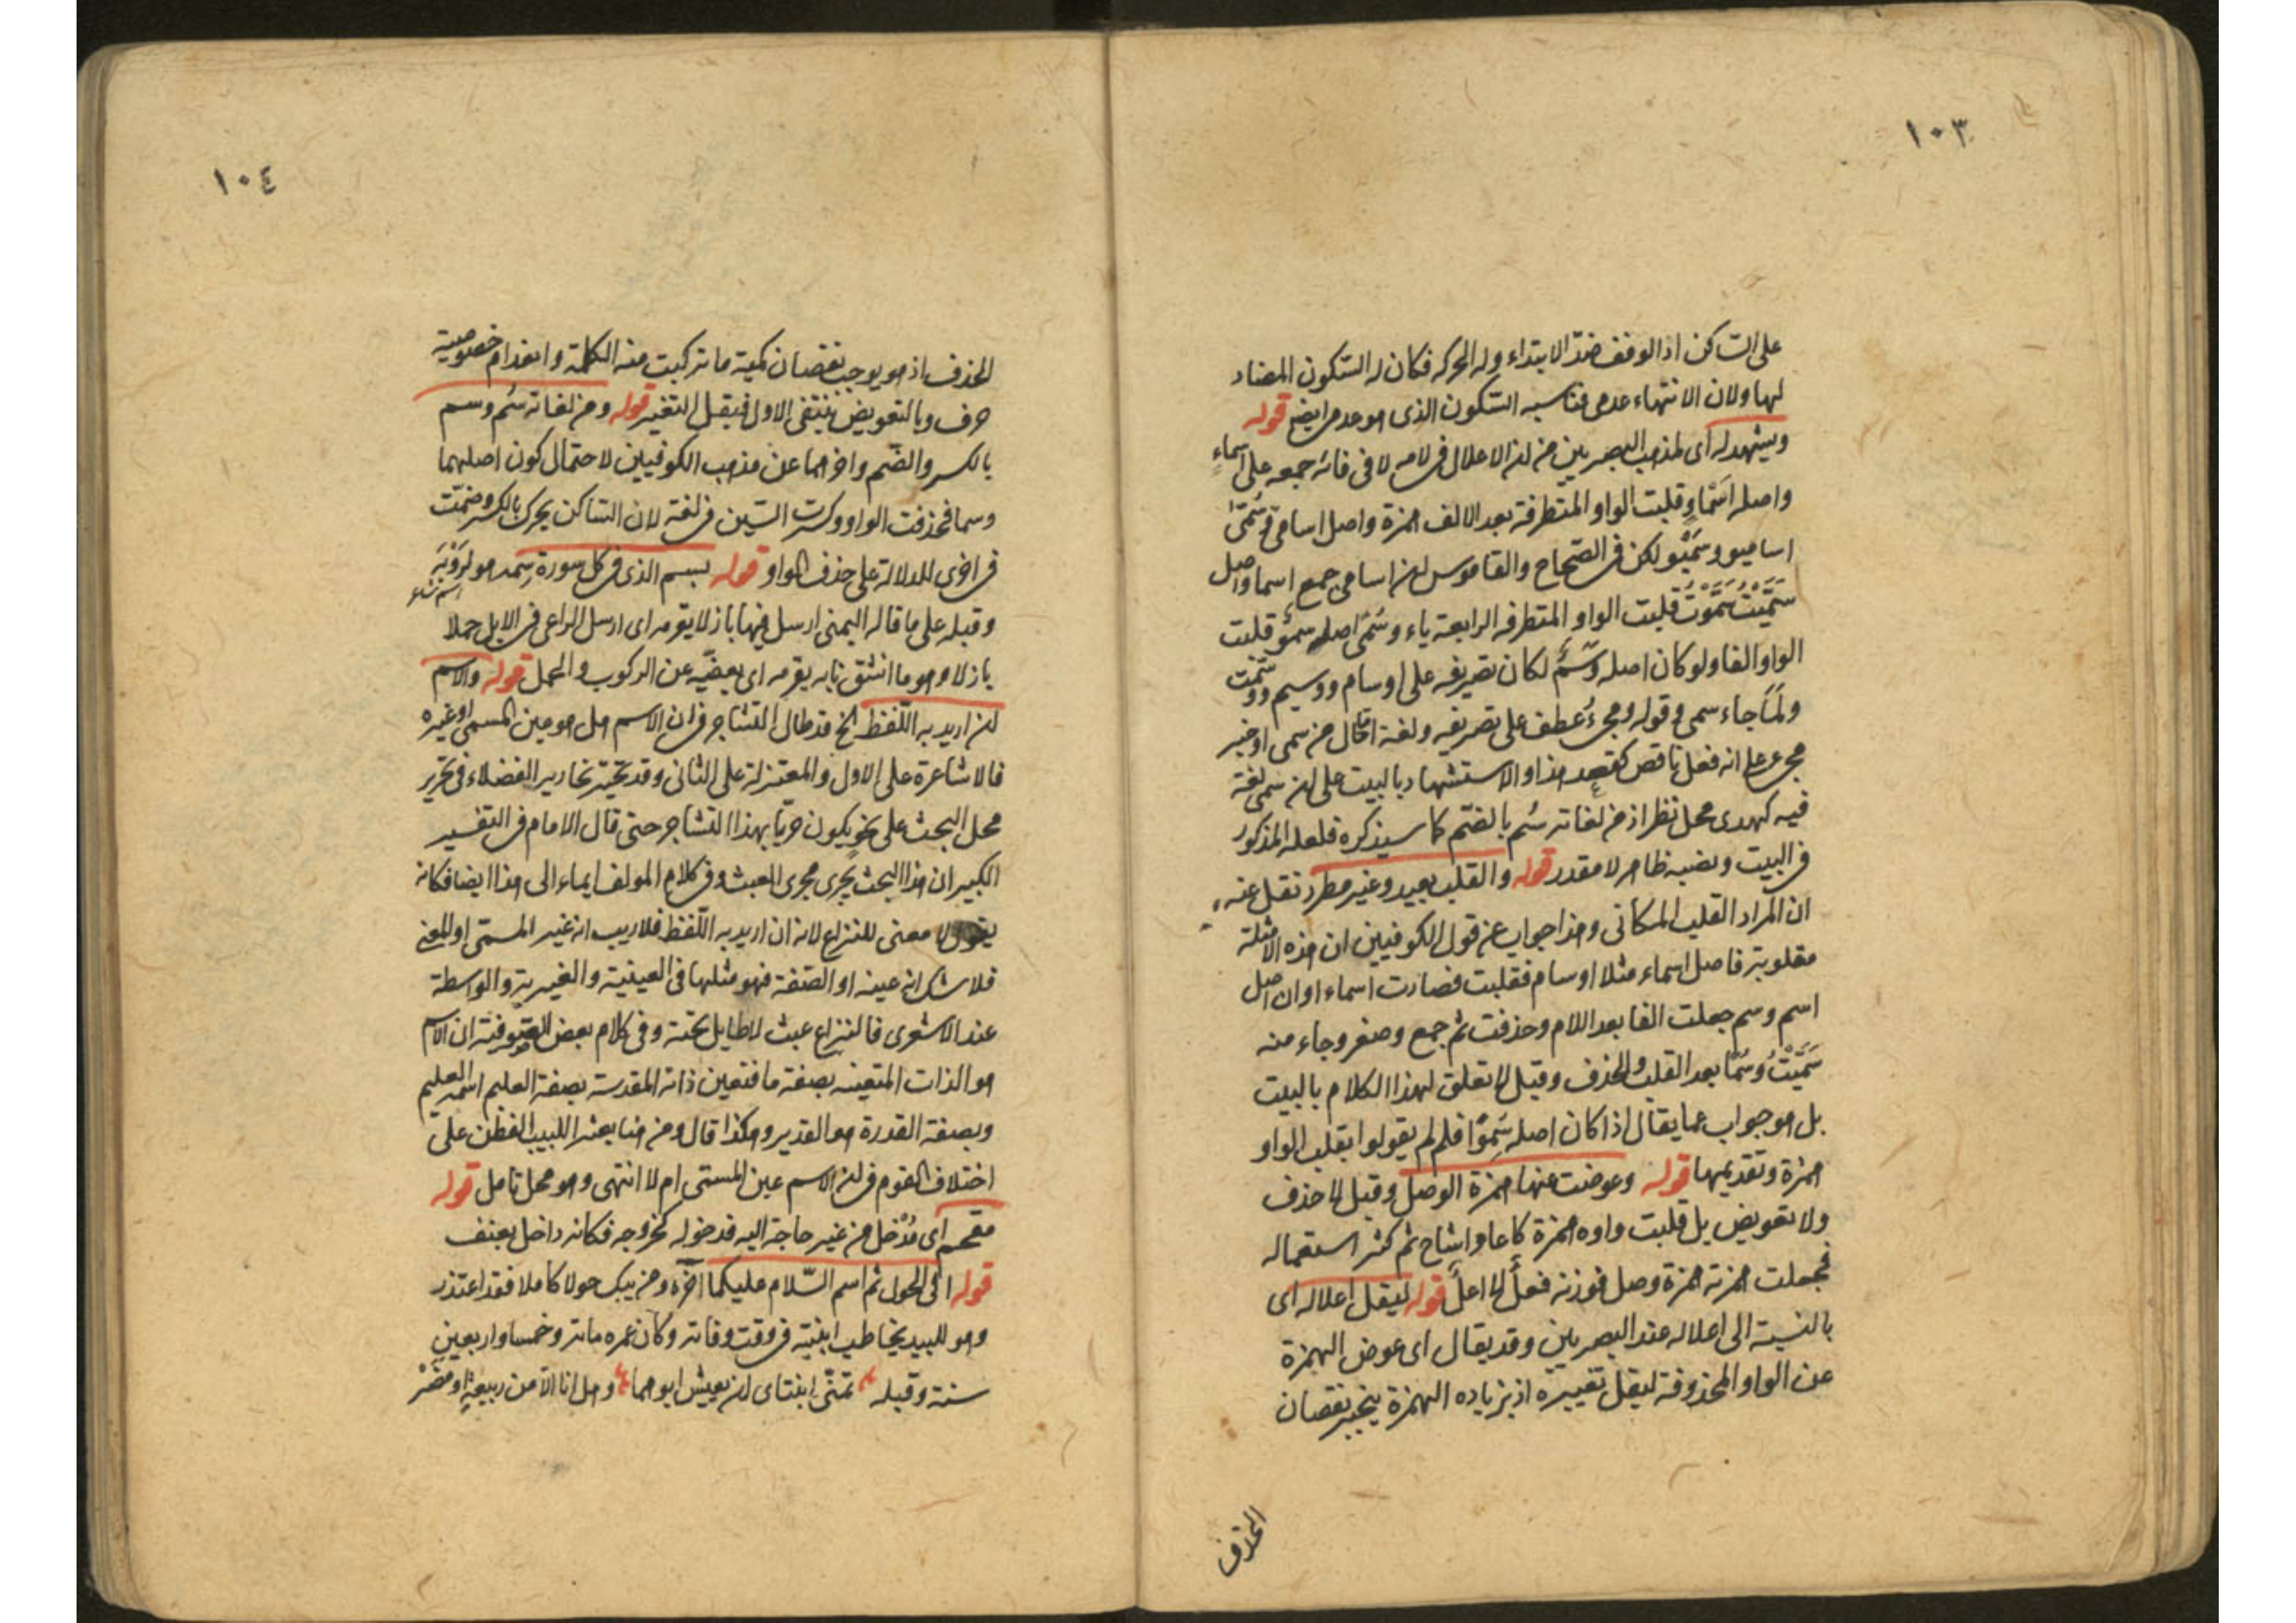 ١٠٣
على الساكن اذ الوقف ضدّ الابتداء وله الحركه فكان له السّكون المضاد
لها ولان الانتهاء عدمى فناسبه السّكون الذى هو عدمى ايضا قوله
ويشهد له اى لمذهب البصريين من ان الاعلال فى لامه لا فى فائه جمعه على اسماءٍ
واصله اَسْماو قلبت الواو المتطرفة بعد الالف همزة واصل اسامى وسُمَىّ
اساميو وسُمَيْو لكن فى الصّحاح والقاموس ان اسامى جمع اسما واصل
سَمَّيْتُ سَمَّوْتُ قلبت الواو المتطرفه الرابعة ياء وسُمًى اصله سُمَوٌ قلبت
الواو الفا ولو كان اصله وَسْمٌ لكان تصريفه على اوسام ووسيم ووسّمت
ولَمَا جاء سمى وقوله ومجىءُ عطف على تصريفه ولغة اما حال من سمى او خبر
مجىء على انه فعل ناقص كقعد هذا والاستشهاد بالبيت على ان سمى لغة
فيه كهدى محل نظر اذ من لغاته سُم بالضّم كما سيذكره فلعله المذكور
فى البيت ونصبه ظاهر لا مقدر قوله والقلب بعيد وغير مطرد نقل عنه
ان المراد القلب المكانى وهذا جواب عن قول الكوفيين ان هذه الامثلة
مقلوبة فاصل اسماء مثلا اوسام فقلبت فصارت اسماء او ان اصل
اسم وسم جعلت الفا بعد اللام وحذفت ثم جمع وصغر وجاء منه
سَمَّيْتُ وسُمًا بعد القلب والحذف وقيل لا تعلق لهذا الكلام بالبيت
بل هو جواب عما يقال اذا كان اصله سِمْوًا فلم لم يقولوا بقلب الواو
همزة وتقديمها قوله وعوضت عنها همزة الوصل وقيل لا حذف
ولا تعويض بل قلبت واوه همزة كاعاو اشاح ثم كثر استعماله
فجعلت همزته همزة وصل فوزنه فعلٌ لا اعلٌ قوله ليقل اعلاله اى
بالنسبة الى اعلاله عند البصريين وقد يقال اى عوض الهمزة
عن الواو المحذوفة ليقل تغييره اذ بزياده الهمزة ينجبر نقصان
الحذف
١٠٤
الحذف اذ هو يوجب نقصان كمية ما تركبت منه الكلمة وانعدام خصوصية
حرف وبالتعويض ينتفى الاول فيقل التغير قوله ومن لغاته سُم وسم
بالكسر والضّم واخرهما عن مذهب الكوفيين لاحتمال كون اصلهما
وسما فحذفت الواو وكسرت السّين فى لغة لان الساكن يحرك بالكسر وضمّت
فى اخرى للدلالة على حذف الواو قوله بسم الذى فى كل سورة سِمه هو لرؤبَة
اسم شاعر
وقبله على ما قاله اليمنى ارسل فيها بازلا يقرمه اى ارسل الراعى فى الابل جملا
بازلا وهو ما انشق نابه يقرمه اى يعفيه عن الركوب والحمل قوله والاسم
ان اريد به اللّفظ الخ قد طال التشاجر فى ان الاسم هل هو عين المسمى او غيره
فالاشاعرة على الاول والمعتزلة على الثانى وقد تحيّر نحارير الفضلاء فى تحرير
محل البحث على نحو يكون حريّا بهذا التشاجر حتى قال الامام فى التفسير
الكبير ان هذا البحث يجرى مجرى العبث وفى كلام المولف ايماء الى هذا ايضا فكانه
يقول لا معنى للنزاع لانه ان اريد به اللّفظ فلا ريب انه غير المسمّى او المعنى
فلا شك انه عينه او الصّفة فهو مثلها فى العينية والغيرية والواسطة
عند الاشعرى فالنزاع عبث لا طايل تحته وفى كلام بعض الصوفية ان الاسم
هو الذات المتعينه بصفة ما فتعين ذاته المقدسة بصفة العليم اسمه العليم
وبصفة القدرة هو القدير وهكذا قال ومن هنا يعثر اللبيب الفطن على
اختلاف القوم فى ان الاسم عين المسمّى ام لا انتهى وهو محل تامل قوله
مقحم اى مُدْخل من غير حاجة اليه فدخوله كخروجه فكانه داخل بعنف
قوله الى الحول ثم اسم السّلام عليكما اخره ومن يبك حولا كاملا فقد اعتذر
وهو للبيد يخاطب ابنتيه فى وقت وفاته وكان عمره ماية وخمسا واربعين
سنة وقبله تمنّى ابنتاى ان يعيش ابوهما وهل انا الّا من ربيعةٍ او مضَرْ